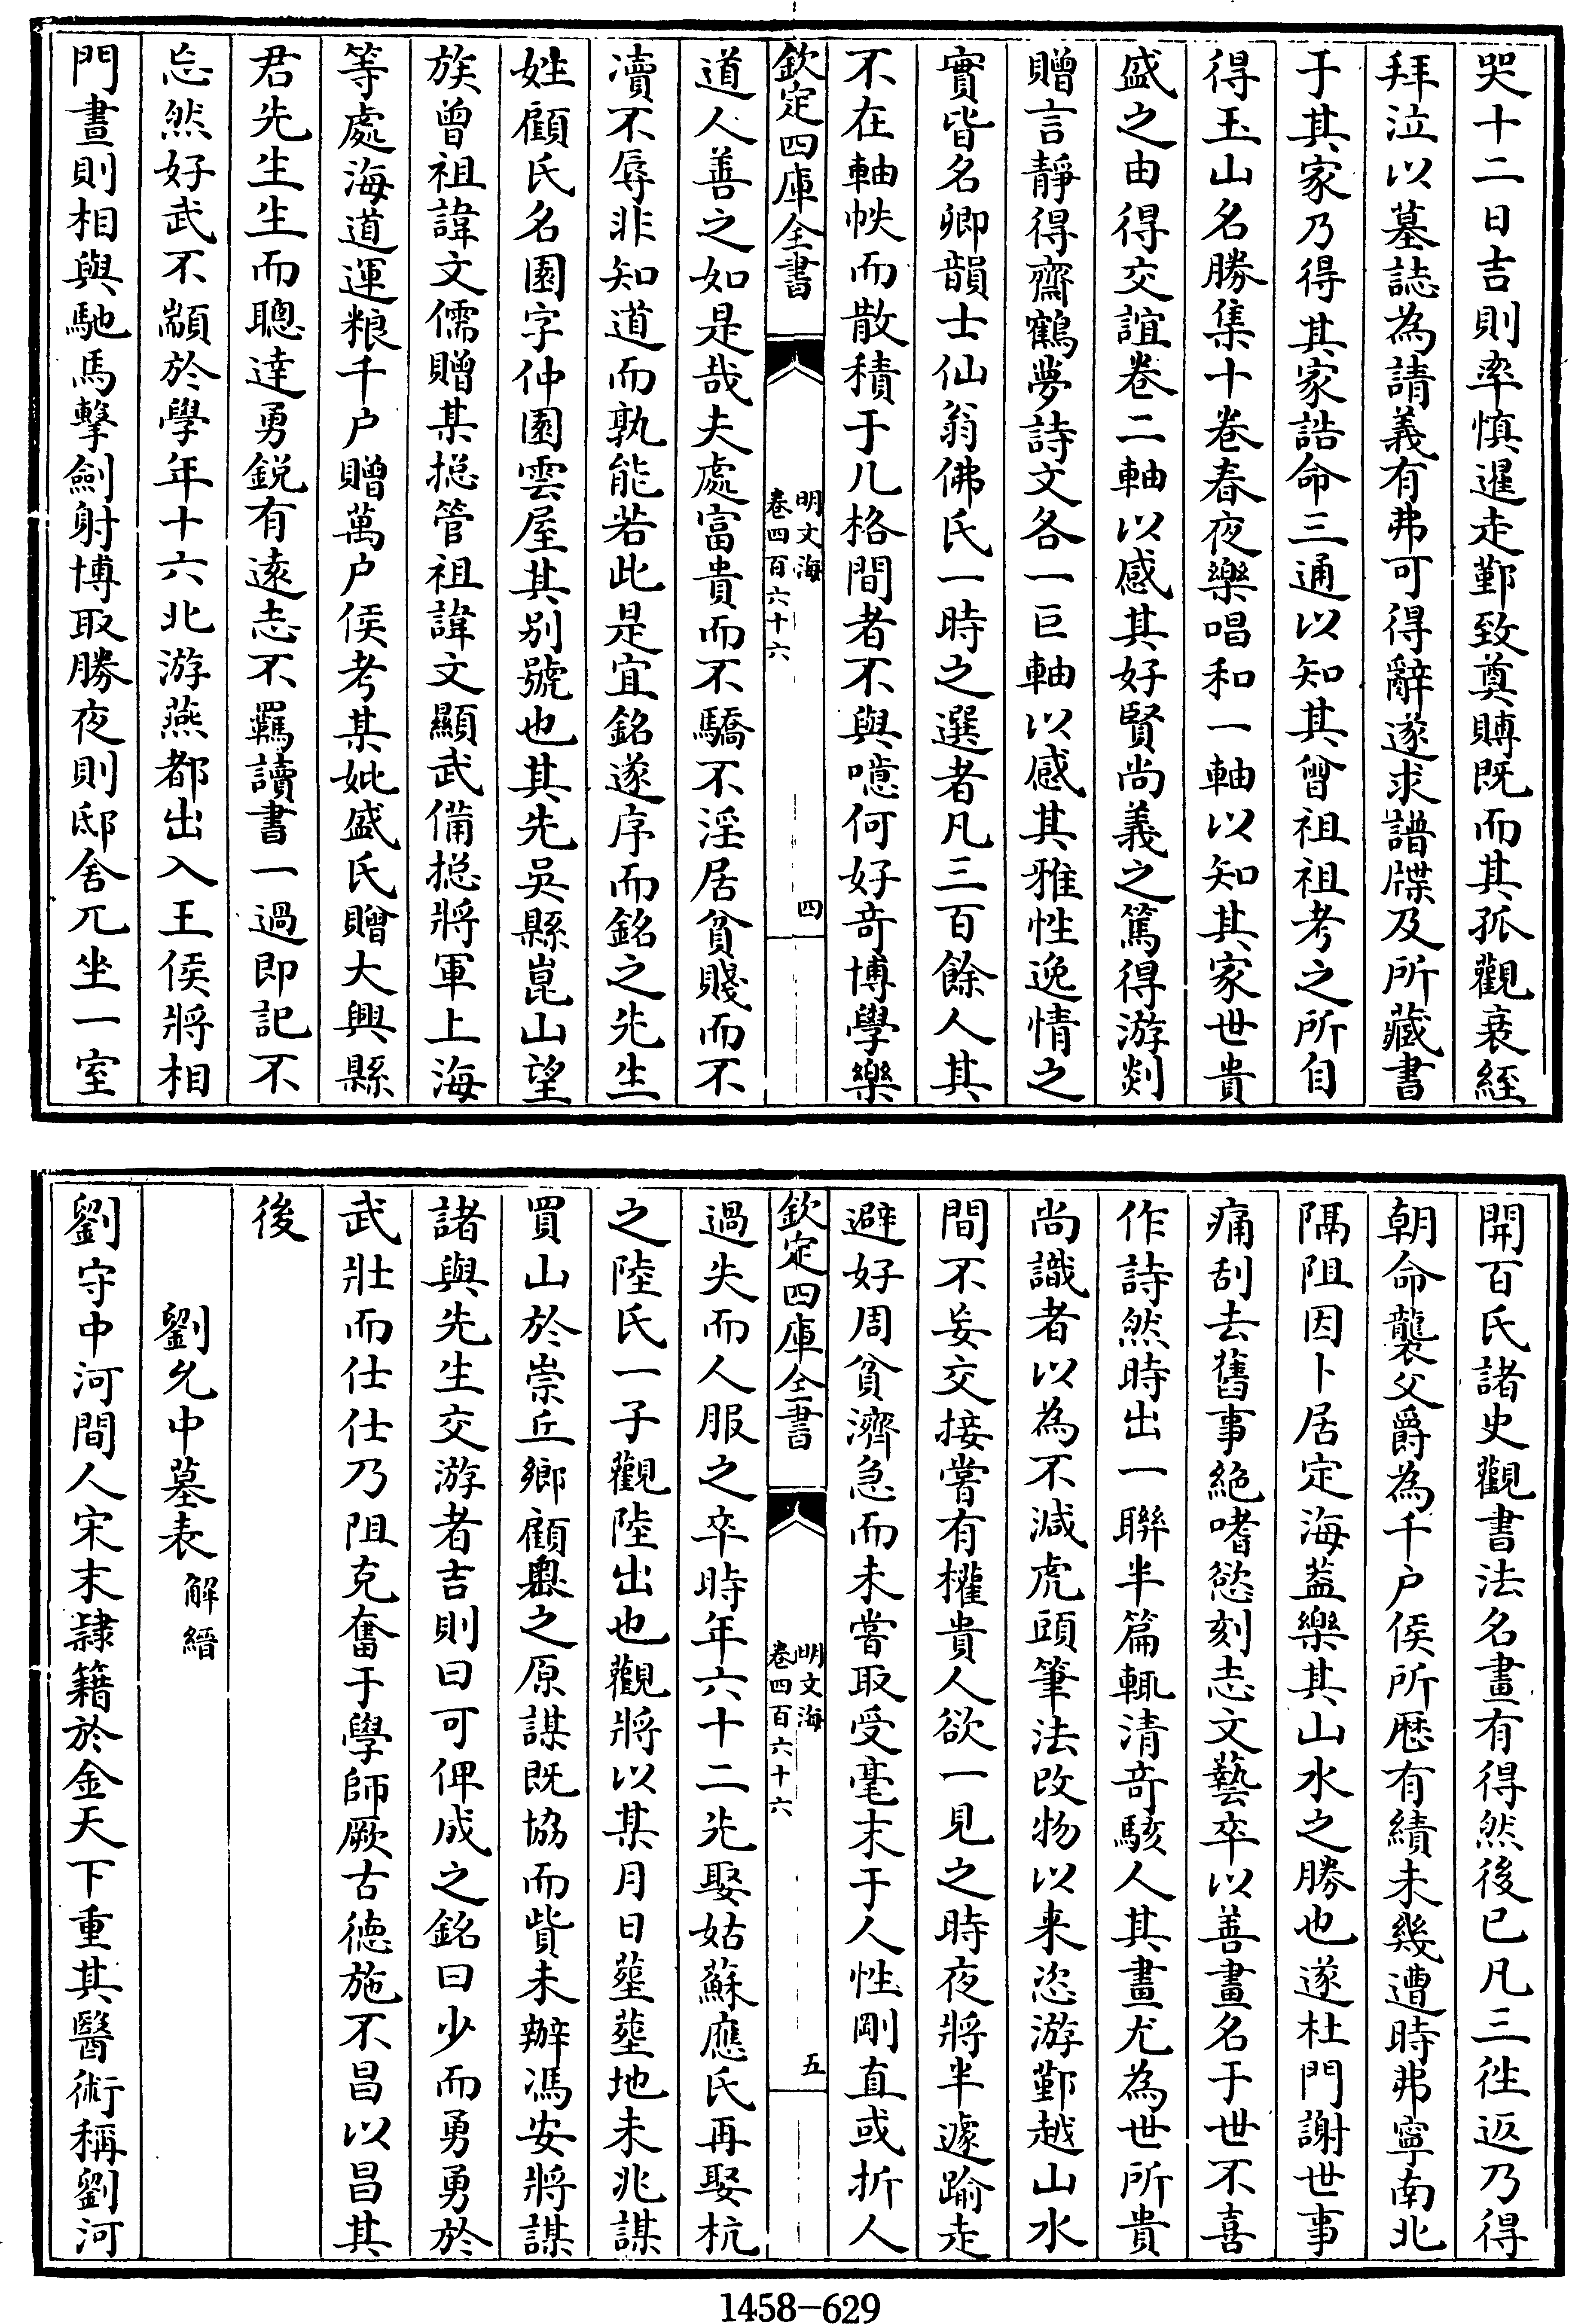 哭十二日吉則率慎暹走鄞致奠賻既而其孤觀衰絰
拜泣以墓誌為請義有弗可得辭遂求譜牒及所藏書
于其家乃得其家誥命三通以知其曾祖祖考之所自
得玉山名勝集十卷春夜樂唱和一軸以知其家世貴
盛之由得交誼卷二軸以感其好賢尚義之篤得游剡
贈言靜得齋鶴夢詩文各一巨軸以感其雅性逸情之
實皆名卿韻士仙翁佛氏一時之選者凡三百餘人其
不在軸帙而散積于几格間者不與噫何好竒博學樂
欽定四庫全書
明文海
卷四百六十六
四
道人善之如是哉夫處富貴而不驕不淫居貧賤而不
瀆不辱非知道而孰能若此是宜銘遂序而銘之先生
姓顧氏名園字仲園雲屋其别號也其先吳縣崑山望
族曾祖諱文儒贈某㧾管祖諱文顯武備㧾將軍上海
等處海道運粮千户贈萬户侯考某妣盛氏贈大興縣
君先生生而聰達勇鋭有遠志不羈讀書一過即記不
忘然好武不顓於學年十六北游燕都出入王侯將相
門晝則相與馳馬擊劍射博取勝夜則邸舍兀坐一室
開百氏諸史觀書法名畫有得然後已凡三徃返乃得
朝命襲父爵為千户侯所歴有績未幾遭時弗寧南北
隔阻因卜居定海蓋樂其山水之勝也遂杜門謝世事
痛刮去舊事絶嗜慾刻志文藝卒以善畫名于世不喜
作詩然時出一聯半篇輒清竒駭人其畫尤為世所貴
尚識者以為不減虎頭筆法改物以来恣游鄞越山水
間不妄交接嘗有權貴人欲一見之時夜將半遽踰走
避好周貧濟急而未嘗取受毫末于人性剛直或折人
欽定四庫全書
明文海
卷四百六十六
五
過失而人服之卒時年六十二先娶姑蘇應氏再娶杭
之陸氏一子觀陸出也觀將以某月日塟塟地未兆謀
買山於崇丘鄉顧㠗之原謀既協而貲未辦馮安將謀
諸與先生交游者吉則曰可俾成之銘曰少而勇勇於
武壯而仕仕乃阻克奮于學師厥古德施不昌以昌其
後
劉允中墓表 解縉
劉守中河間人宋末隸籍於金天下重其醫術稱劉河
1458-629